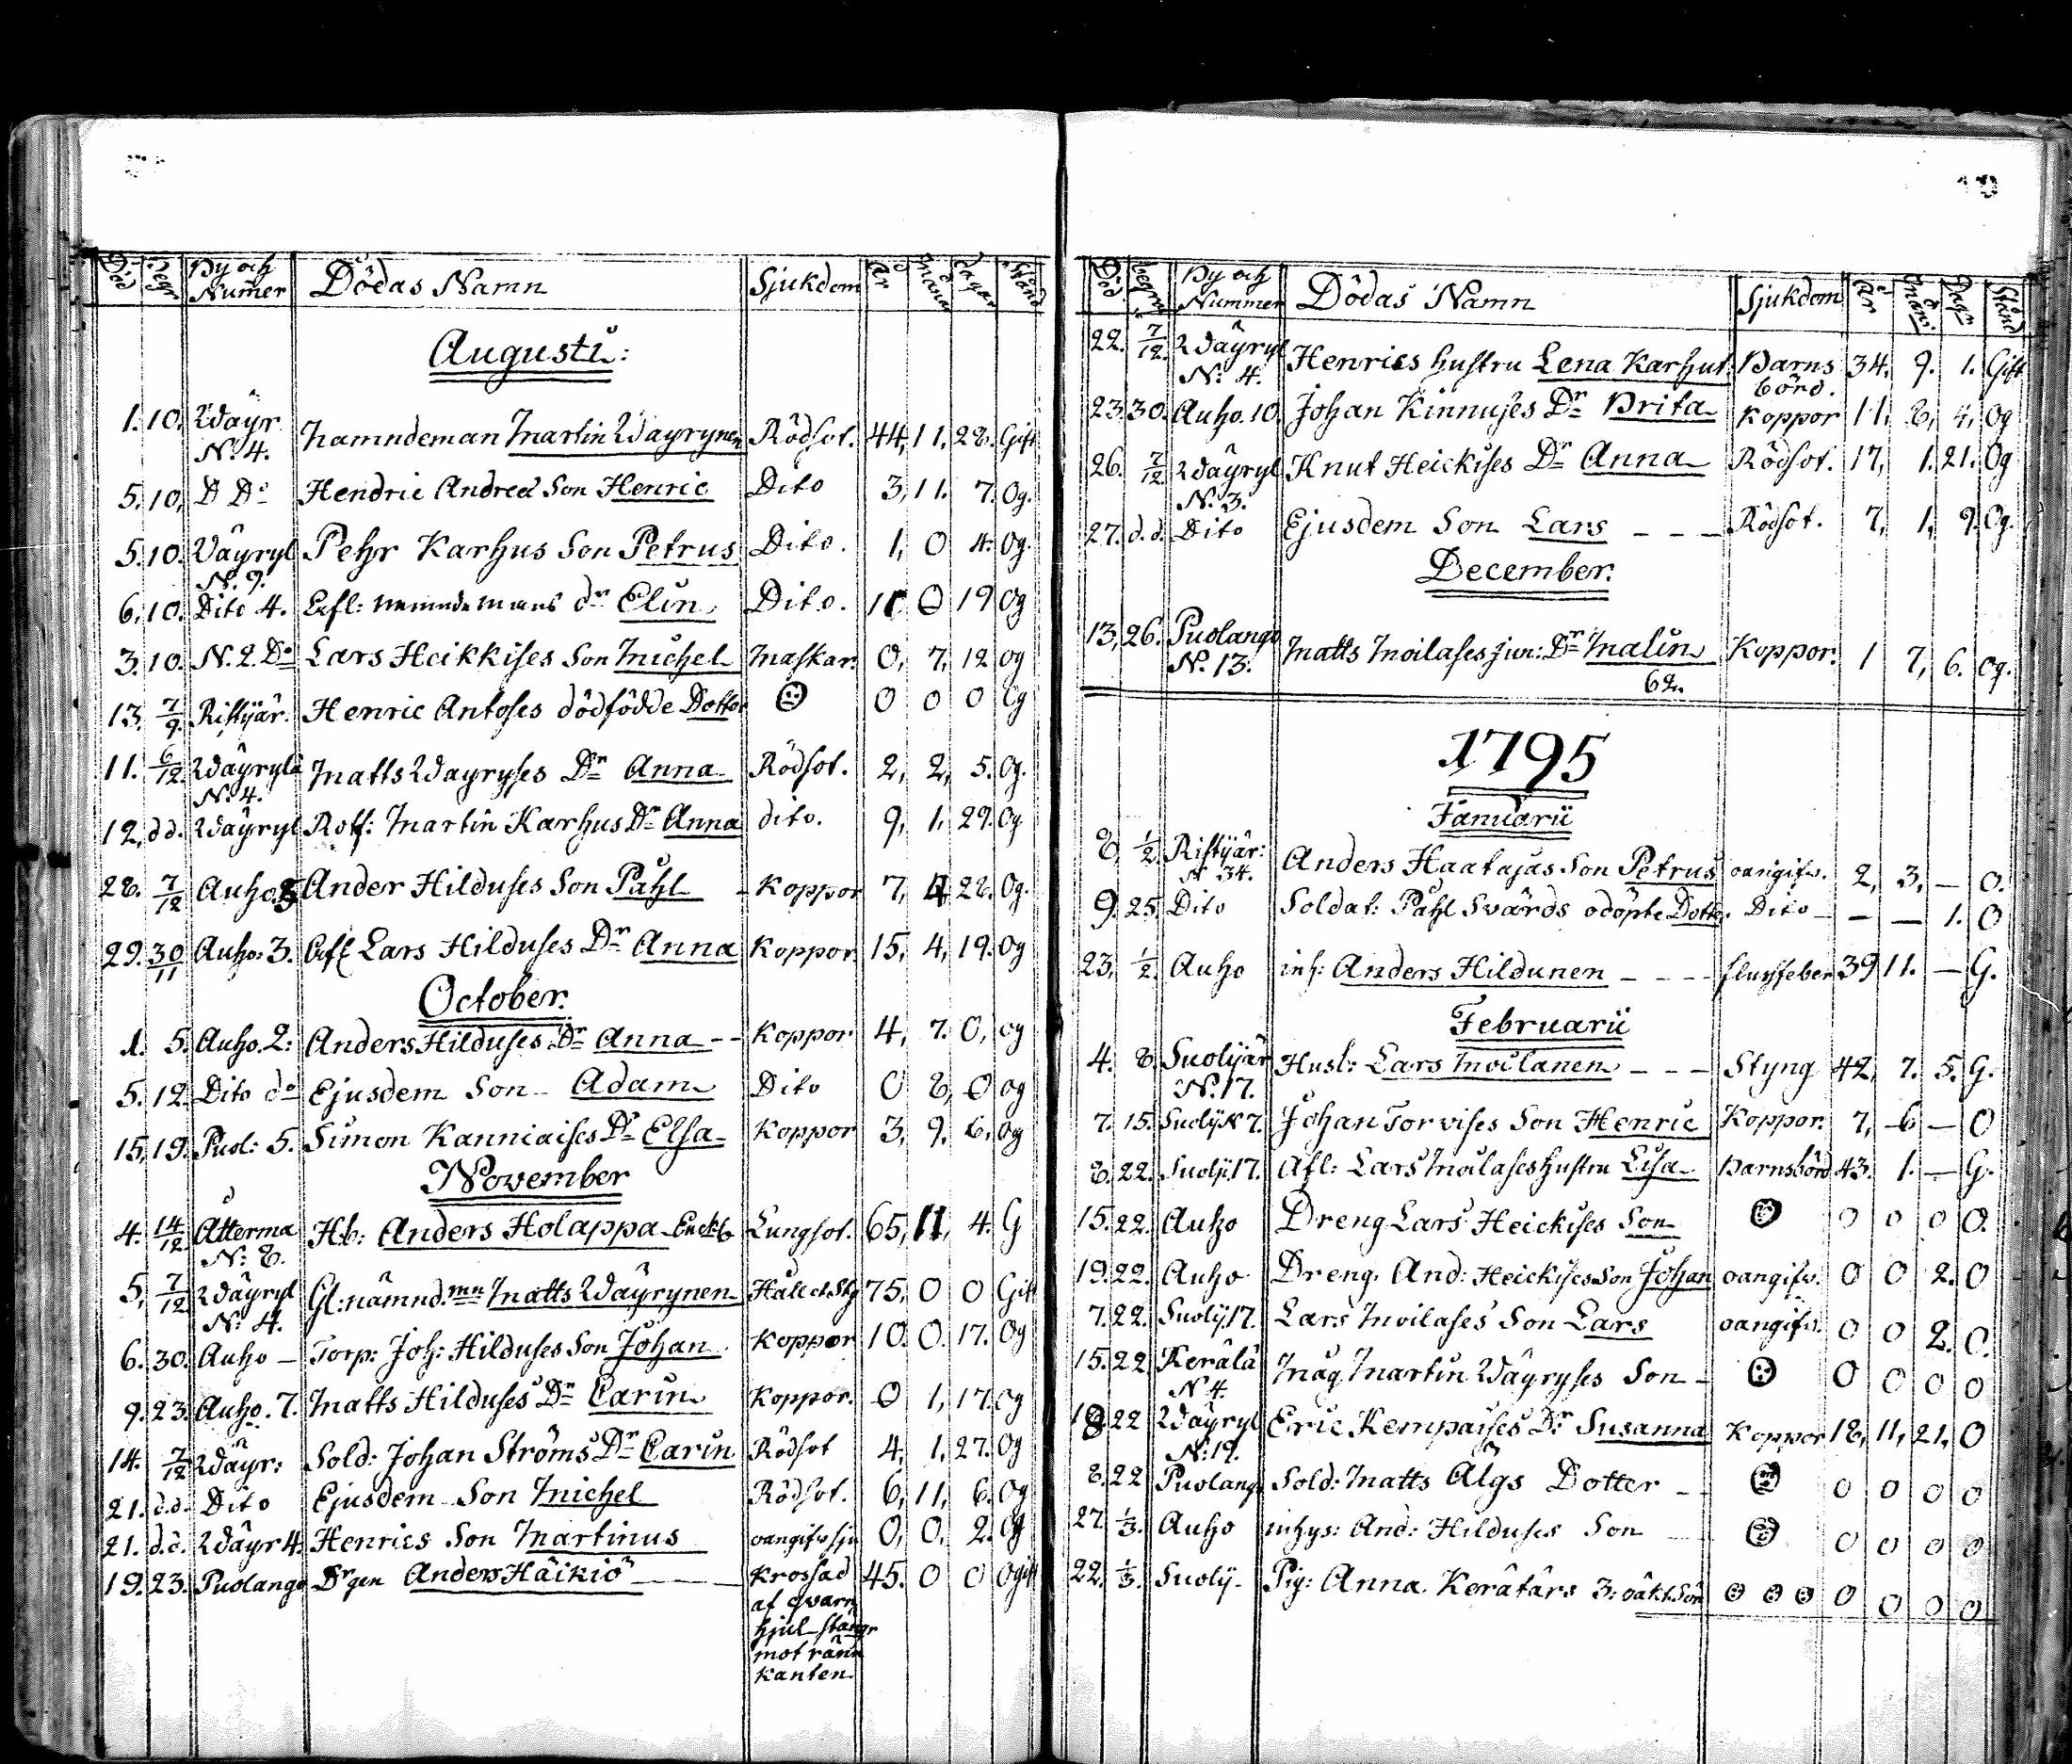 Död Begr By och Numer Dödas Namn Sjukdom År Månad Dagar Stånd
Augusti:
1. 10. Wäyr N:4. Namndeman Martin Wäyrynen Rödsot. 44, 11. 28. Gift
5. 10, D Do Hendric Andreæ Son Henric Dito 3, 11. 7. Og.
5. 10. Wäyryl N. 9. Pehr Karhus Son Petrus Dito. 1, 0 4. Og.
6, 10. Dito 4. Afl: nämndemans dr Elin Dito. 0 19 Og
3. 10. N. 2. Do Lars Heikkises Son Michel Maskar. 0, 7, 12 Og
13. 7/9. Ristijär. Henric Antoses dödfödde Dotter 0 0 0 Og
11. 6/12. Wäyrylä N. 4. Matts Wäyryses Dr Anna Rödsot. 2, 2, 5. Og.
12, dd. Wäyryl Rotf: Martin Karhus Dr Anna dito. 9, 1, 29. Og
28. 7/12 Auho. Ander Hilduses Son Påhl - Koppor 7, 4 28. Og.
29. 30/11 Auho: 3. Afl Lars Hilduses Dr Anna Koppor. 15, 4, 19. Og
October.
1. 5. Auho. 2: Anders Hilduses Dr Anna -- Koppor 4, 7. 0, og
5. 12. Dito do Ejusdem Son - Adam Dito 0 8, 0 og
15, 19. Puol: 5. Simon Kanniaises Dr Elsa Koppor 3, 9. 6. Og
November
4. 14/12 Atterma N: 8. Hb: Anders Holappa Enckl Lungsot. 65, 11, 4. G
5, 7/12 Wäyryl N: 4. Gl: nämnd.mn Matts Wäyrynen Håll et Styg 75, 0 0 Gift
6. 30. Auho - Torp: Joh: Hilduses Son Johan Koppor 10. 0. 17. Og
9. 23. Auho. 7. Matts Hilduses Dr Carin Koppor. 0 1, 17. Og
14. 7/12 Wäyr: Sold: Johan Ströms Dr Carin Rödsot 4, 1, 27. Og
21. d.d. Dito Ejusdem Son Michel Rödsot. 6, 11, 6. Og
21. d.d. Wäyr 4. Henrics Son Martinus oangifv sju 0, 0, 2. Og
19. 23. Puolango Drgen Anders Häikiö Krossad 45. 0 0 Ogift
af qvarn
hjul stångr
mot ränn
kanten
Död begra By och Nummer Dödas Namn Sjukdom År Mån. Dagr Stånd
22. 7/12. Wäyryl N: 4. Henrics hustru Lena Karhut. Barns börd. 34, 9. 1. Gift
23. 30. Auho. 10. Johan Kinnuses Dr Brita Koppor 11, 8, 4, Og
26. 7/12 Wäyryl N. 3. Knut Heickises Dr Anna Rödsot. 17, 1. 21. Og
27. d.d. Dito Ejusdem Son Lars - - - Rödsot. 7, 1, 9. Og.
December.
13, 26. Puolango N. 13. Matts Moilases jun: Dr Malin Koppor. 1 7, 6. Og.
62.
1795
Januarii
8. 1/2 Ristijär: N 34. Anders Haatajas Son Petrus oangifv. 2, 3, - O.
9. 25. Dito Soldat: Påhl Svärds odöpte Dotter. Dito - - - 1. O
23, 1/2. Auho inh: Anders Hildunen - - - flussfeber 39 11. - G.
Februarii
4. 8. Suolijär N. 17. Husb: Lars Moilanen - - - Styng 42, 7. 5. G.
7. 15. Suolij N 7. Johan Torvises Son Henric Koppor. 7, 6 - O
8. 22. Suolij. 17. Afl: Lars Moilases hustru Lisa Barnsbörd 43. 1. - G.
15. 22. Auho Dreng Lars Heickises Son 0 0 0 O.
19. 22. Auho Dreng. And: Heickises Son Johan oangifv. 0 0 2. O
7. 22. Suolij 17. Lars Moilases Son Lars oangifv. 0 0 2. O.
15. 22 Kerälä N 4. Måg Martin Wäyryses Son - 0 0 0 0
18 22 Wäyryl N: 19. Eric Kempaises Dr Susanna Koppor 18, 11, 21, O
8. 22 Puolang Sold: Matts Älgs Dotter - - 0 0 0 0
27. 1/3. Auho inhys: And: Hilduses Son 0 0 0 0
22. 1/3. Suolij - Pig: Anna Kerätärs 3: oäkt. Sön 0 0 0 0